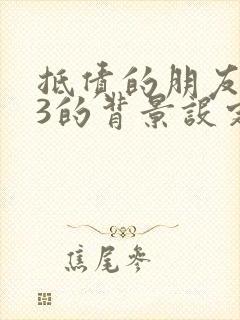 抵债的朋友
3的背景設定
焦尾參